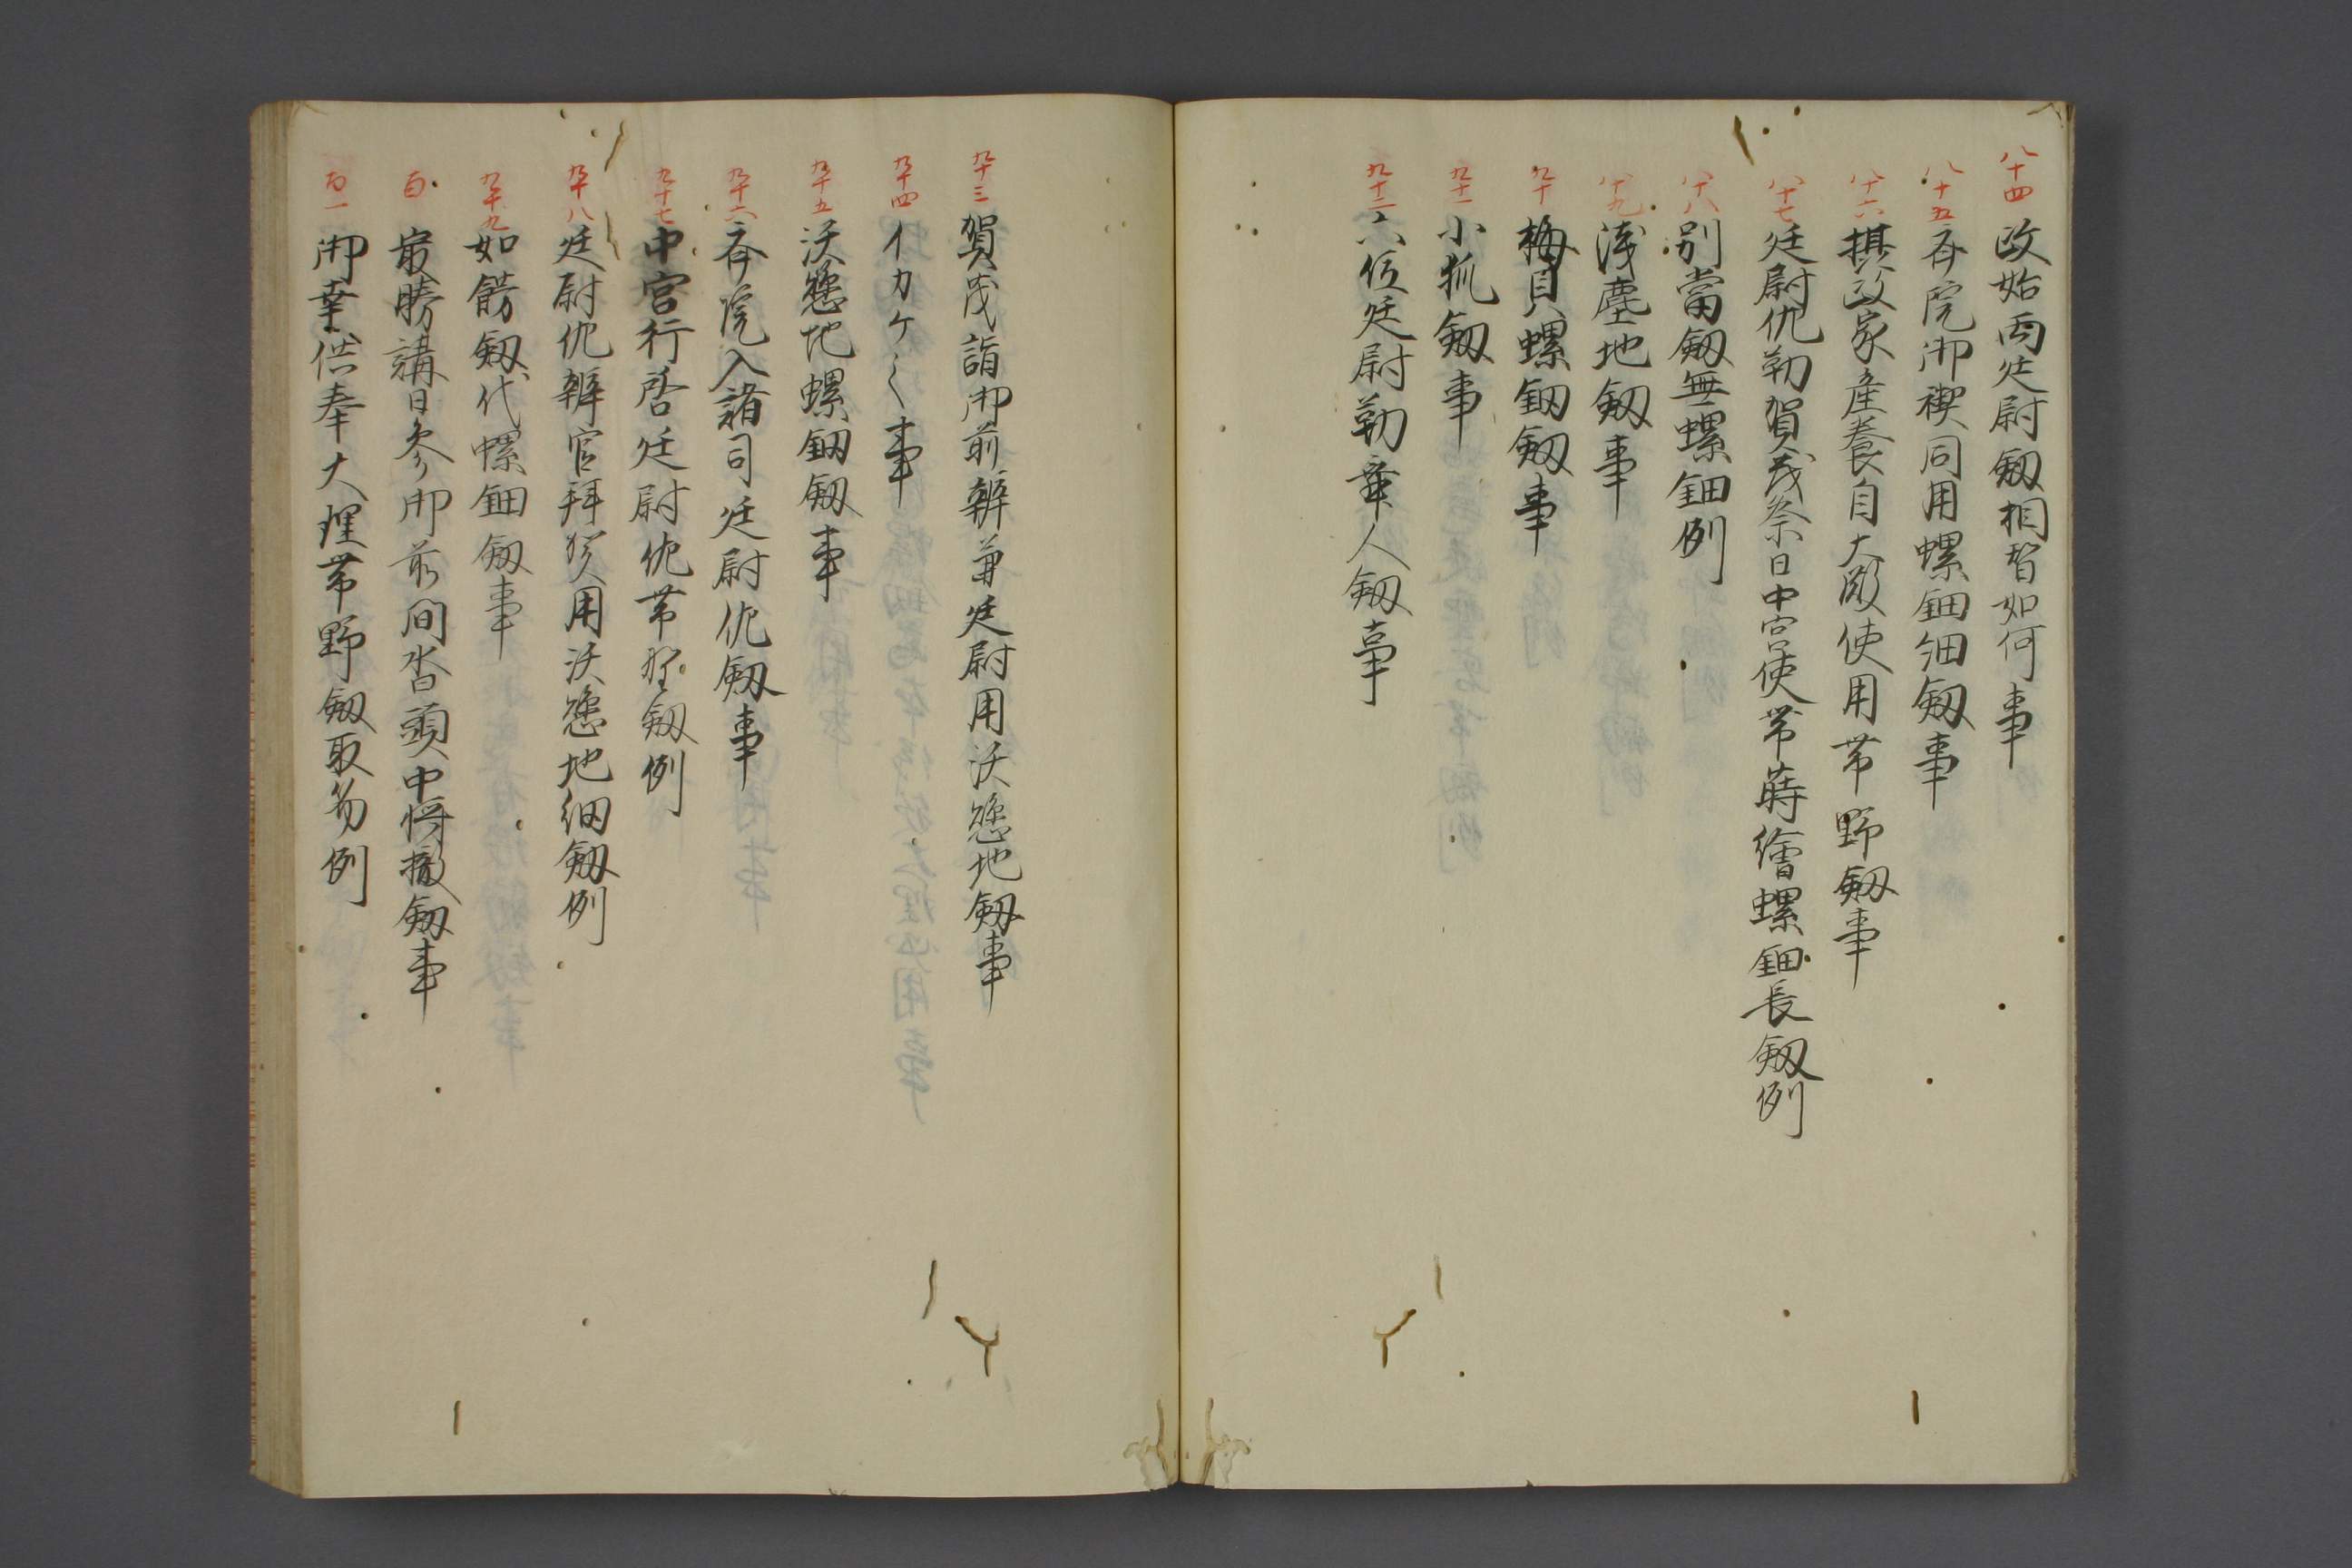 八十四 政始両廷尉釼相替如何事
八十五 斎院御禊同用螺鈿細釼事
八十六 摂政家産養自大殿使用帯野釼事
八十七 廷尉佐勤賀茂祭日中宮使帯蒔繪螺鈿長釼例
八十八 別當釼無螺鈿例
八十九 浅塵地釼事
九十 梅貝螺鈿釼事
九十一 小狐釼事
九十二 六位廷尉勤舞人釼事
九十三 賀茂詣御前辨兼廷尉用沃懸地釼事
九十四 イカケ〱事
九十五 沃懸地螺鈿釼事
九十六 斎院入諸司廷尉佐釼事
九十七 中宮行啓廷尉佐帯野釼例
九十八 廷尉佐辨官拝賀用沃懸地細釼例
九十九 如餝釼代螺鈿釼事
百 最勝講日参御前間沓頭中将撤釼事
百一 御幸供奉大理帯野釼取笏例